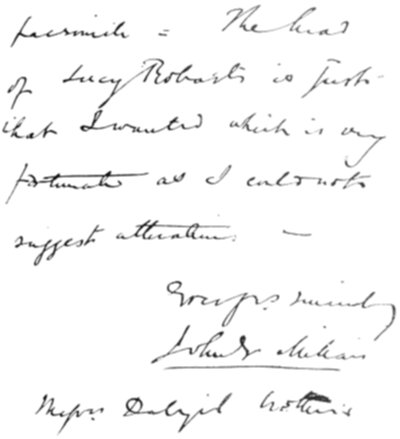 facsimile = The head
of Lucy Robarts is just
what I wanted which is very
fortunate as I could not
suggest alteration. —
Yours sincerely
John E Millais
Messrs. Dalziel Brothers